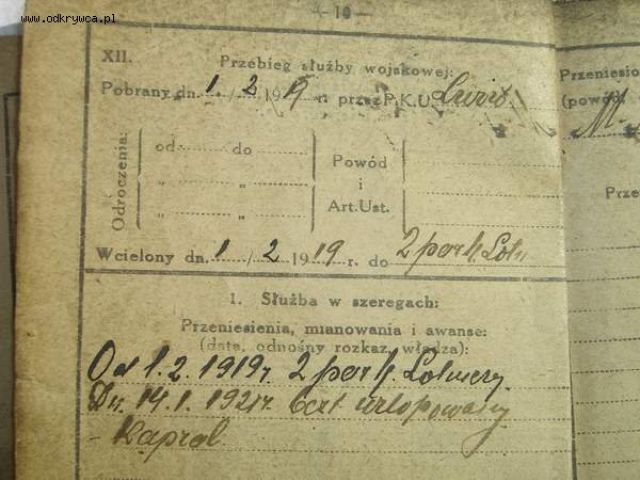 www.odkrywca.pl
— 10 —
XII. Przebieg służby wojskowej:
Pobrany dn. 1 / 2 1919 r. przez P.K.U.
Odroczenia:
od do
„ „
„ „
Powód
i
Art.Ust.
Wcielony dn. 1 / 2 1919 r. do 2 pułk. Lotn
1. Służba w szeregach:
Przeniesienia, mianowania i awanse:
(data, odnośny rozkaz, władza):
Od 1.2.1919r. 2 Lotniczy
Dn. 14.1.1921r. bezt urlopowany
- Kapral
Przeniesio
(powód
M.
Prze